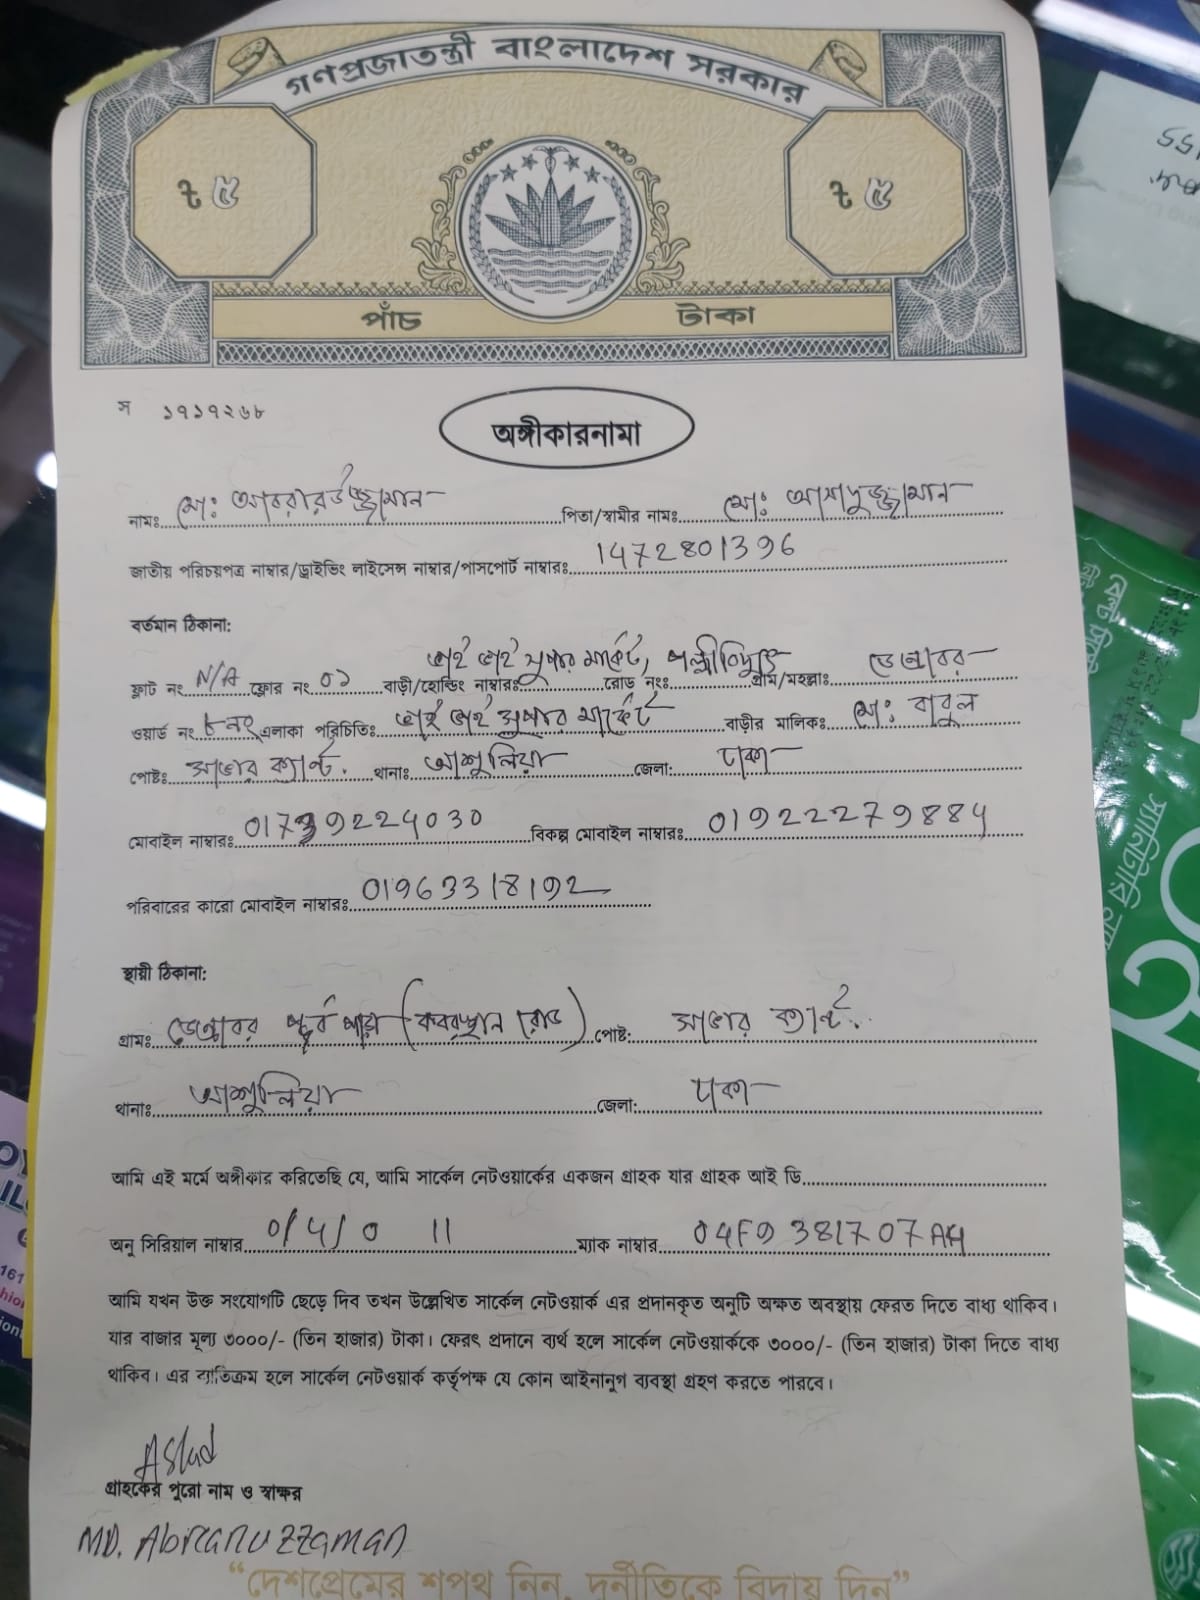 গণপ্রজাতন্ত্রী বাংলাদেশ সরকার
৳ ৫ ৳ ৫
পাঁচ টাকা
স ১৭১৭২৬৮
অঙ্গীকারনামা
নামঃ মোঃ আবরারউজ্জামান পিতা/স্বামীর নামঃ মোঃ আসাদুজ্জামান
জাতীয় পরিচয়পত্র নাম্বার/ড্রাইভিং লাইসেন্স নাম্বার/পাসপোর্ট নাম্বারঃ 1472801396
বর্তমান ঠিকানা:
ফ্লাট নং N/A ফ্লোর নং ০১ বাড়ী/হোল্ডিং নাম্বারঃ ভাই ভাই সুপার মার্কেট, রোড নংঃ পল্লীবিদ্যুৎ গ্রাম/মহল্লাঃ ডেন্ডাবর
ওয়ার্ড নং ৮নং এলাকা পরিচিতিঃ ভাই ভাই সুপার মার্কেট বাড়ীর মালিকঃ মোঃ বাবুল
পোষ্টঃ সাভার ক্যান্ট. থানাঃ আশুলিয়া জেলা: ঢাকা
মোবাইল নাম্বারঃ 01739224030 বিকল্প মোবাইল নাম্বারঃ 019222279884
পরিবারের কারো মোবাইল নাম্বারঃ 01963318192
স্থায়ী ঠিকানা:
গ্রামঃ ডেন্ডাবর পূর্ব পাড়া (কবরস্থান রোড) পোষ্ট: সাভার ক্যান্ট.
থানাঃ আশুলিয়া জেলা: ঢাকা
আমি এই মর্মে অঙ্গীকার করিতেছি যে, আমি সার্কেল নেটওয়ার্কের একজন গ্রাহক যার গ্রাহক আই ডি
অনু সিরিয়াল নাম্বার 0/4/0 11 ম্যাক নাম্বার 04F9 381707AA
আমি যখন উক্ত সংযোগটি ছেড়ে দিব তখন উল্লেখিত সার্কেল নেটওয়ার্ক এর প্রদানকৃত অনুটি অক্ষত অবস্থায় ফেরত দিতে বাধ্য থাকিব।
যার বাজার মূল্য ৩০০০/- (তিন হাজার) টাকা। ফেরৎ প্রদানে ব্যর্থ হলে সার্কেল নেটওয়ার্ককে ৩০০০/- (তিন হাজার) টাকা দিতে বাধ্য
থাকিব। এর ব্যতিক্রম হলে সার্কেল নেটওয়ার্ক কর্তৃপক্ষ যে কোন আইনানুগ ব্যবস্থা গ্রহণ করতে পারবে।
গ্রাহকের পুরো নাম ও স্বাক্ষর
MD. Abraruzzaman
“দেশপ্রেমের শপথ নিন, দুর্নীতিকে বিদায় দিন”